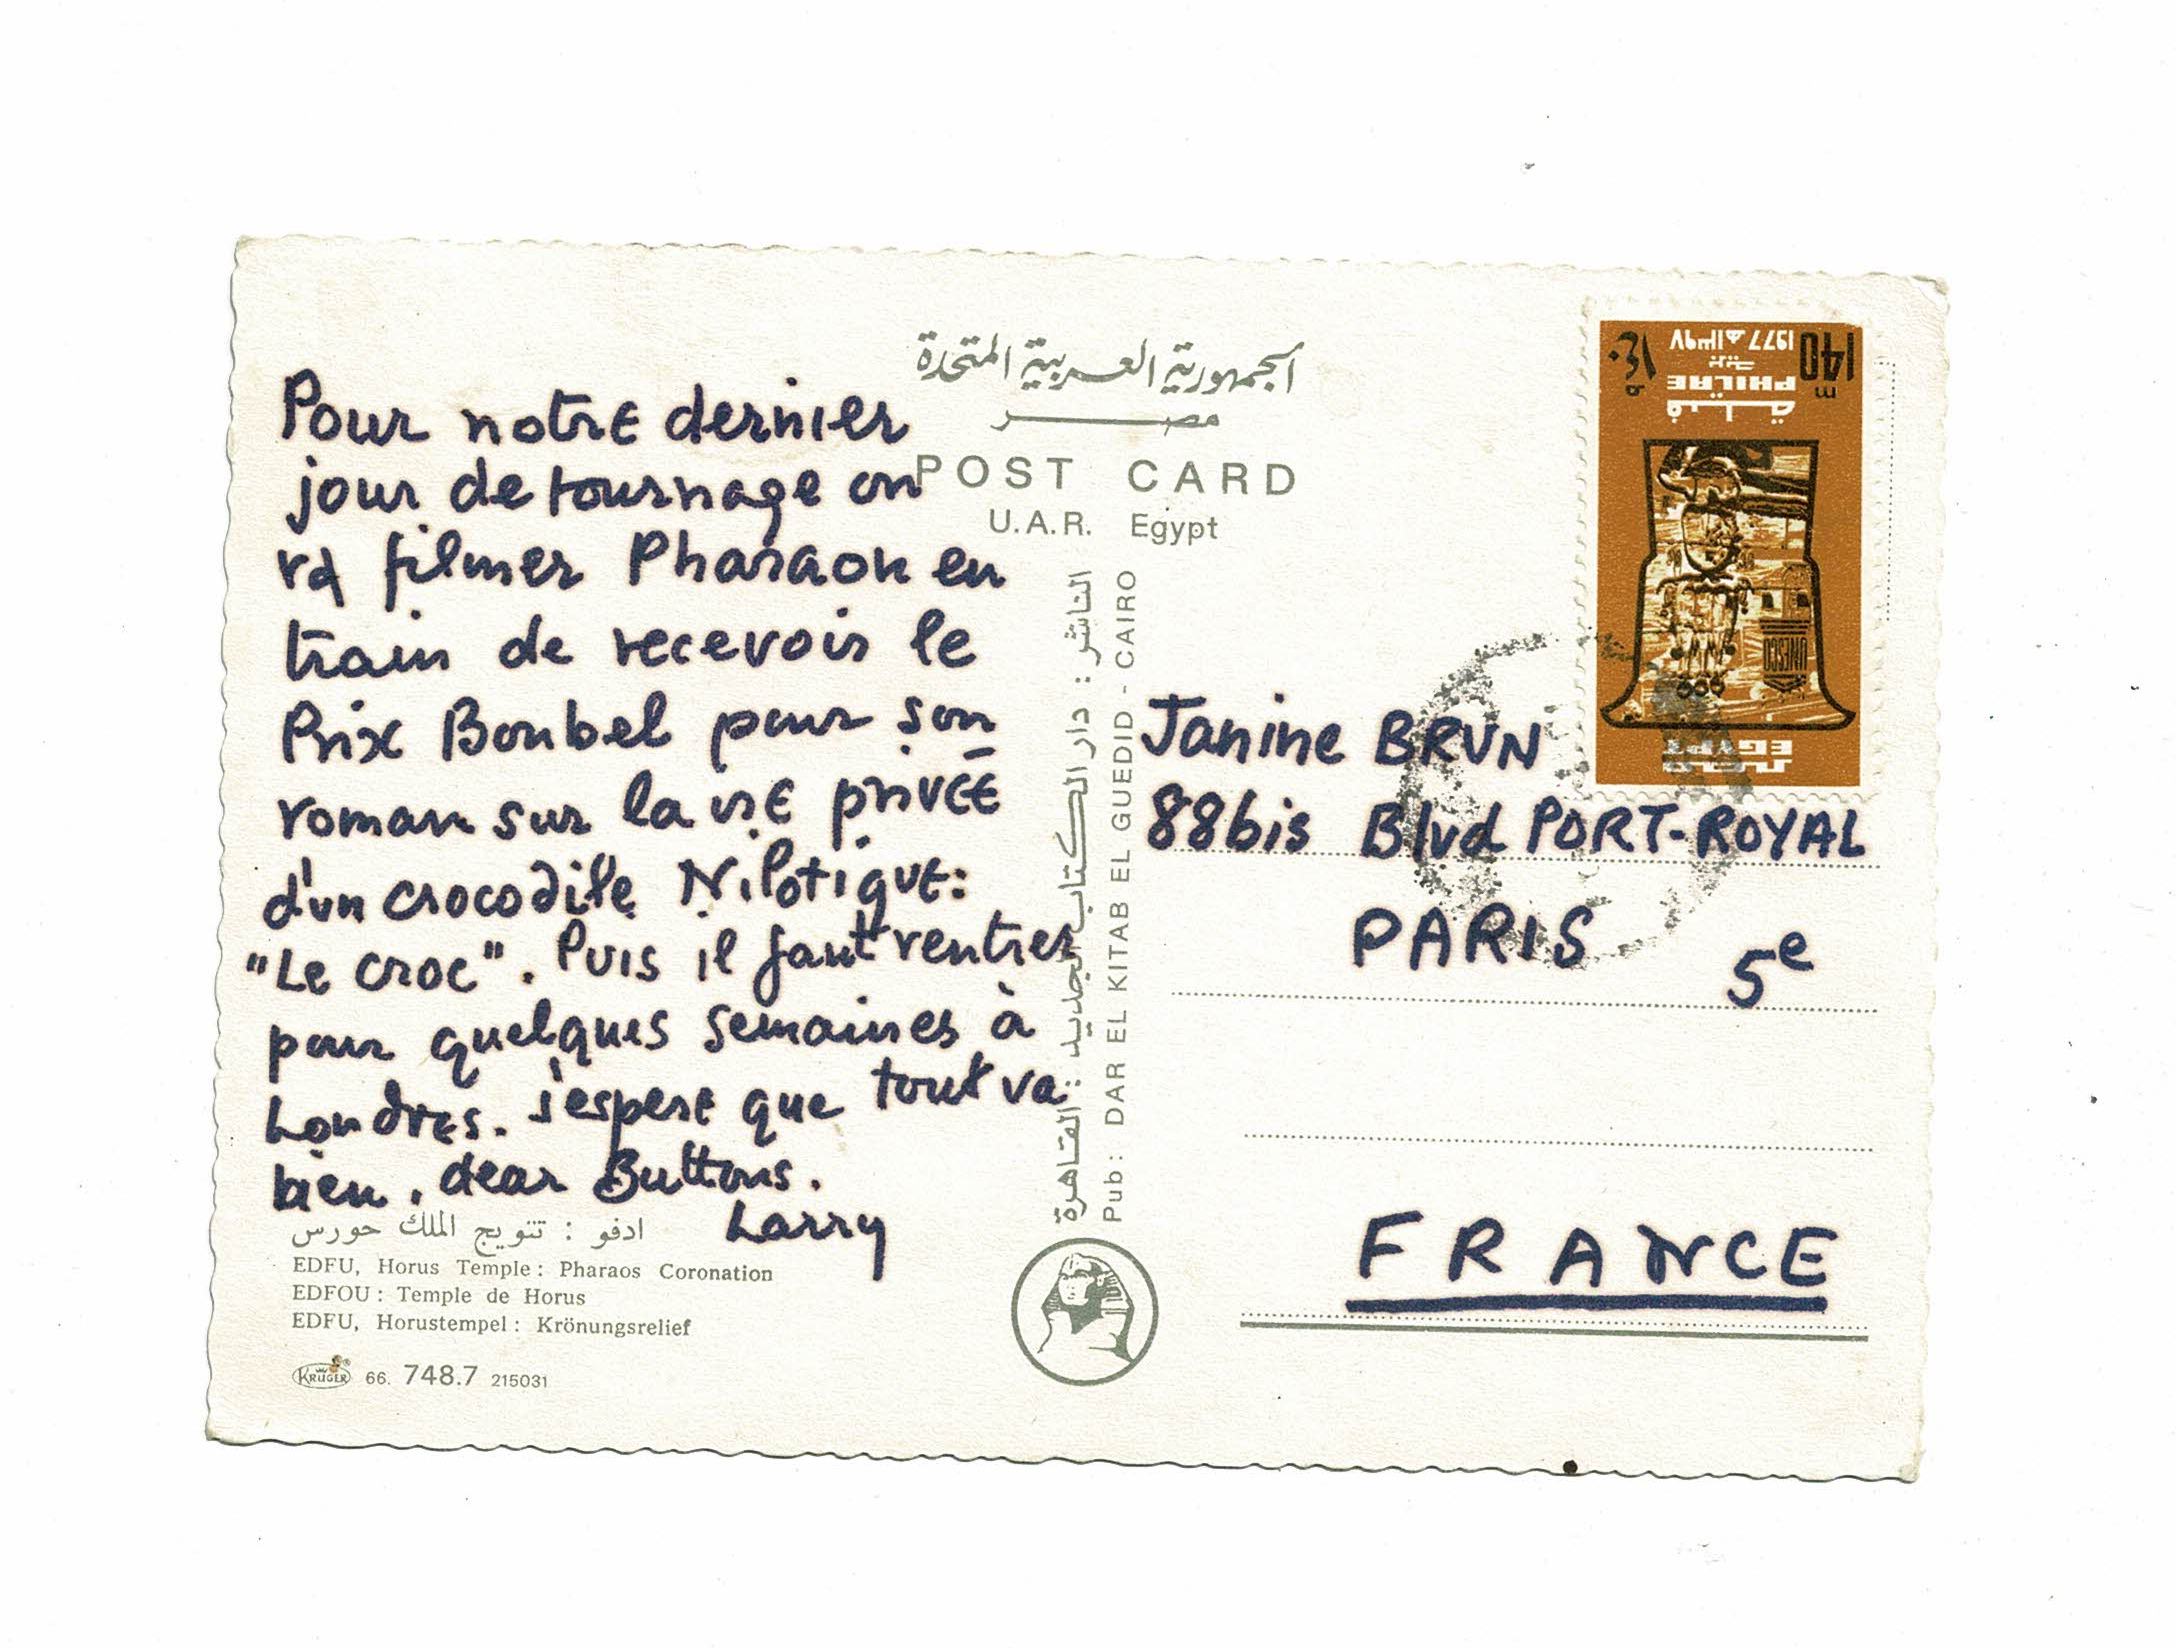 الجمهورية العربية المتحدة
مصر
POST CARD
U.A.R. Egypt
Pour notre dernier
jour de tournage on
va filmer Pharaon en
train de recevoir le
Prix Bonbel pour son
roman sur la vie privée
d'un crocodile Nilotique:
"Le croc". Puis il faut rentrer
pour quelques semaines à
Londres. J'espere que tout va
bien, dear Buttons.
Larry
ادفو : تتويج الملك حورس
EDFU, Horus Temple : Pharaos Coronation
EDFOU : Temple de Horus
EDFU, Horustempel : Krönungsrelief
KRÜGER 66. 748.7 215031
الناشر : دار الكتاب الجديد : القاهرة
Pub : DAR EL KITAB EL GUEDID - CAIRO
140 m ١٤٠ م
1977 ١٣٩٧هـ
بريد
PHILAE
فيلة
UNESCO
EGYPT
مصر
Janine BRUN
88bis Blvd PORT-ROYAL
PARIS 5e
FRANCE